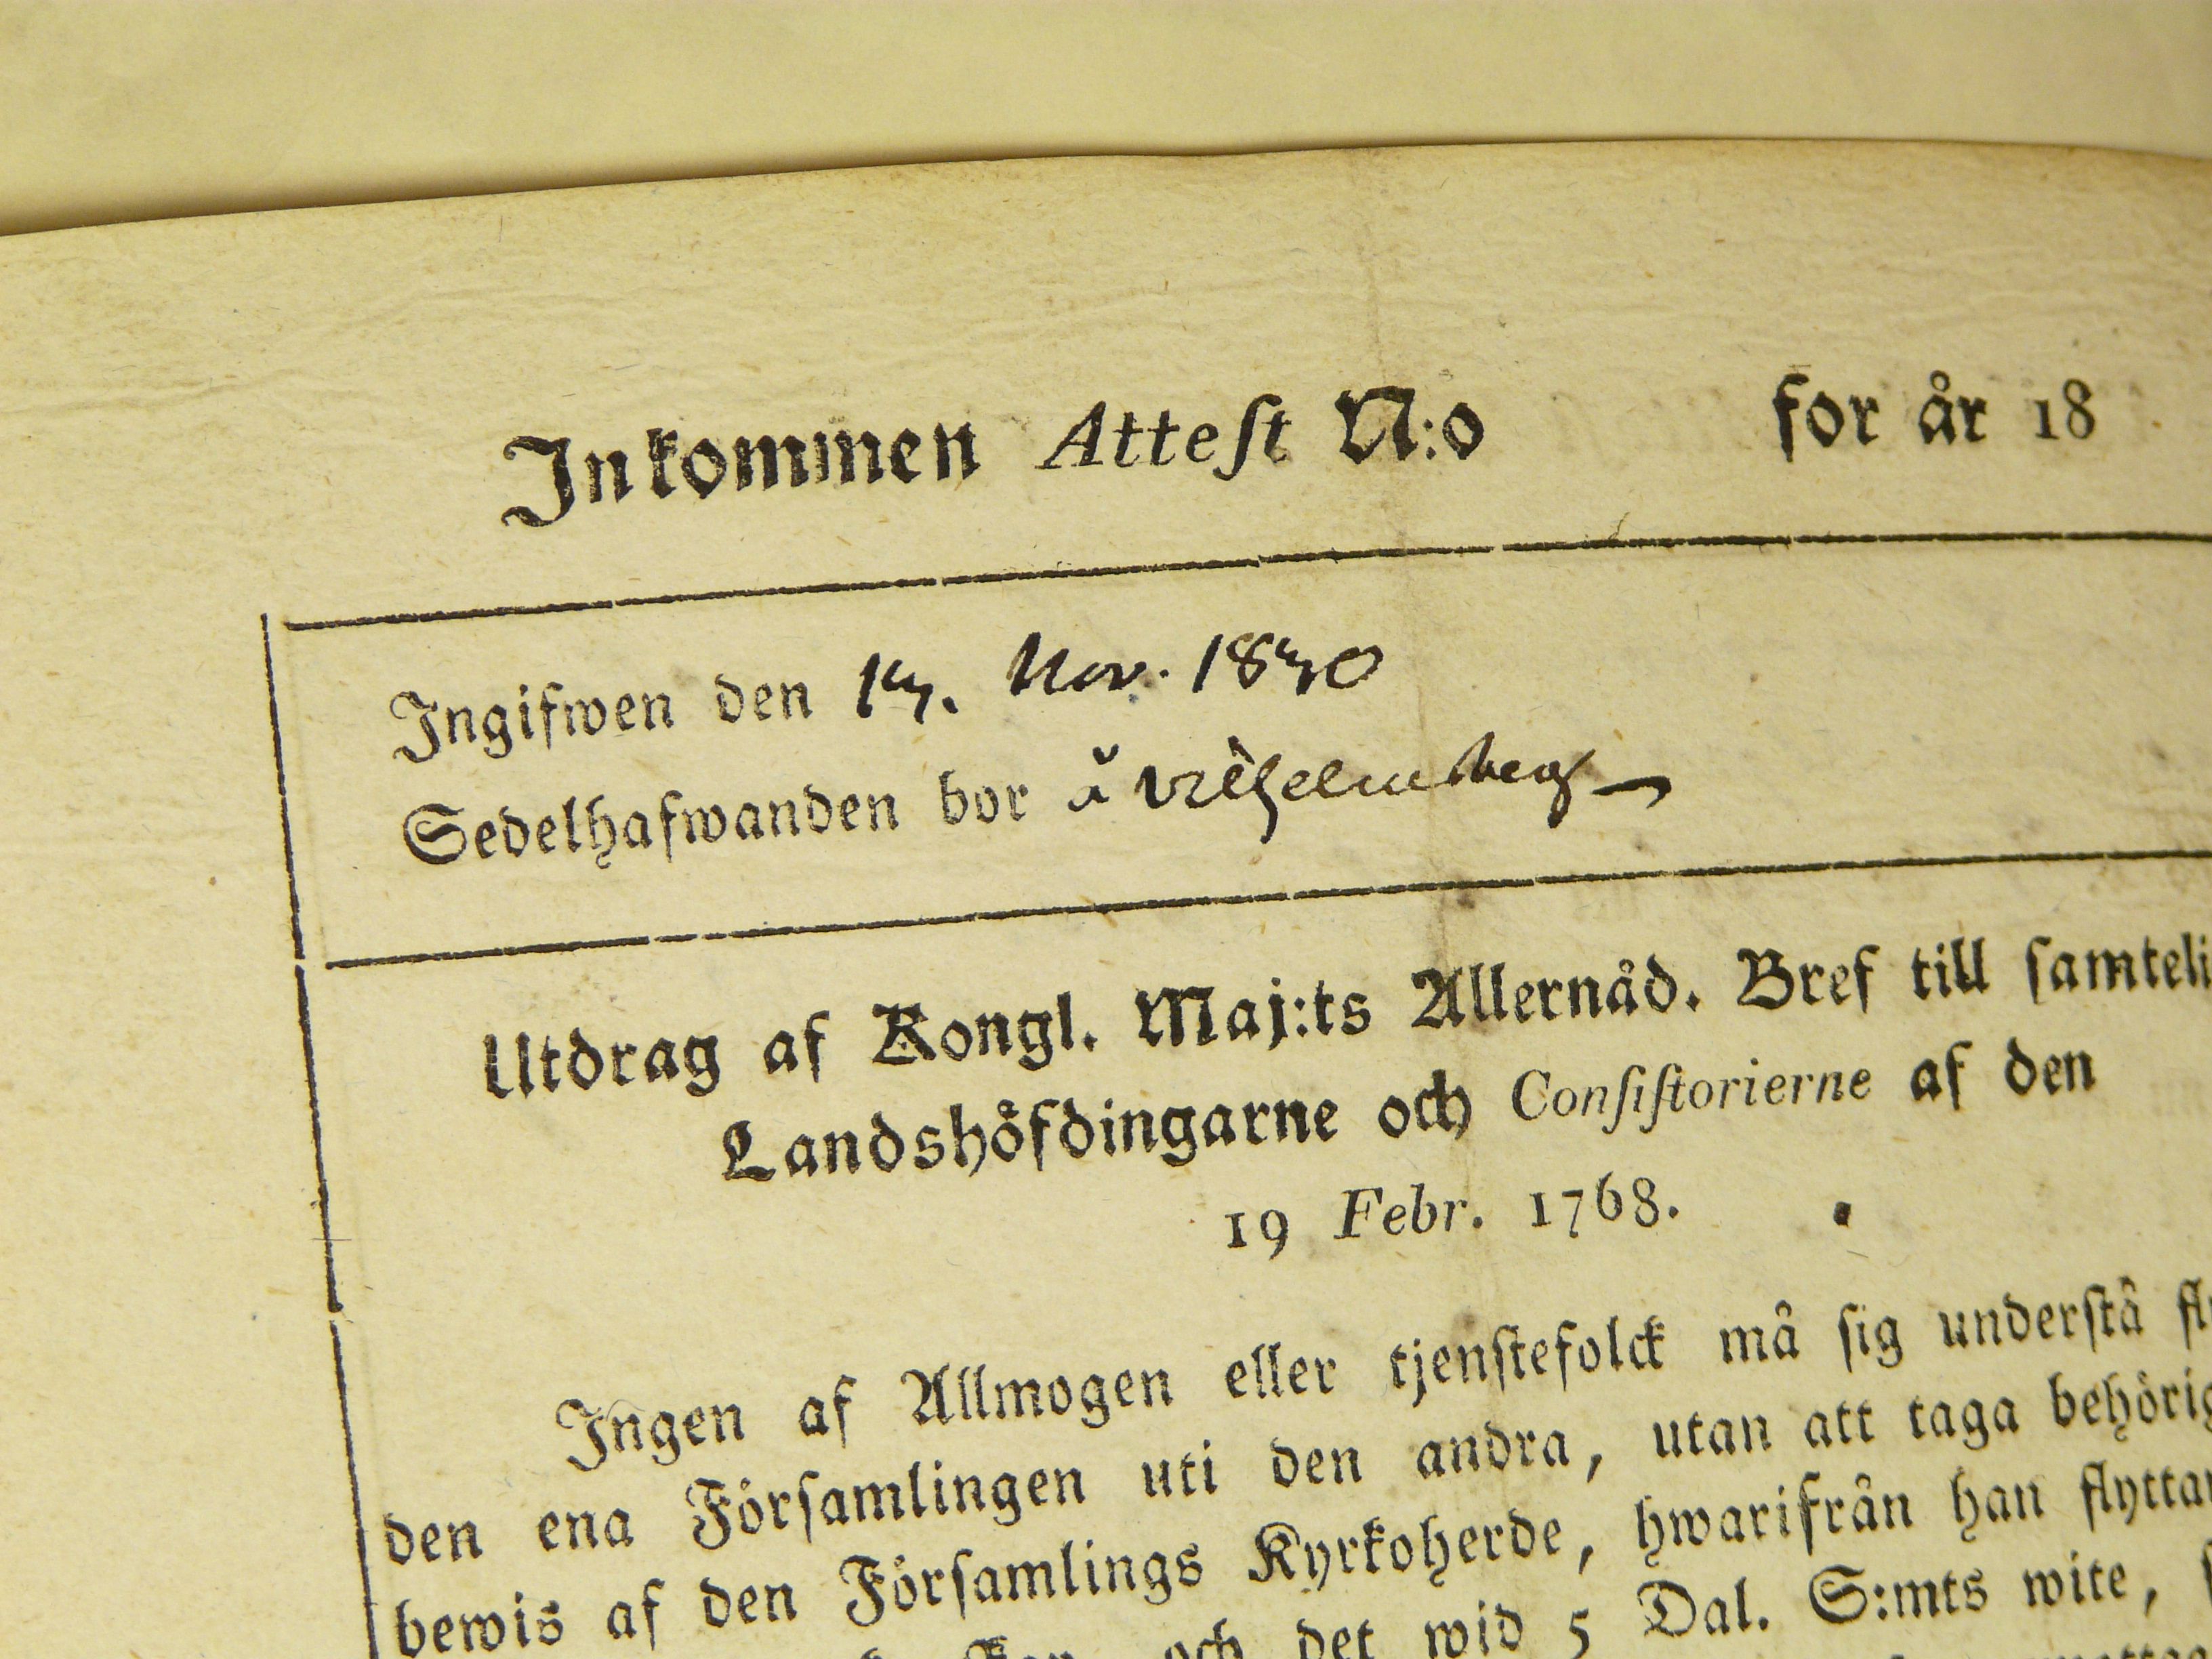 Inkommen Attest N:o for år 18
Ingifwen den 14. Nov. 1840
Sedelhafwanden bor å Vilhelmsberg
Utdrag af Kongl. Maj:ts Allernåd. Bref till samteli
Landshöfdingarne och Consistorierne af den
19 Febr. 1768.
Ingen af Allmogen eller tjenstefolck må sig understå fly
den ena Församlingen uti den andra, utan att taga behörig
bewis af den Församlings Kyrkoherde, hwarifrån han flyttar
och det wid 5 Dal. S:mts wite,